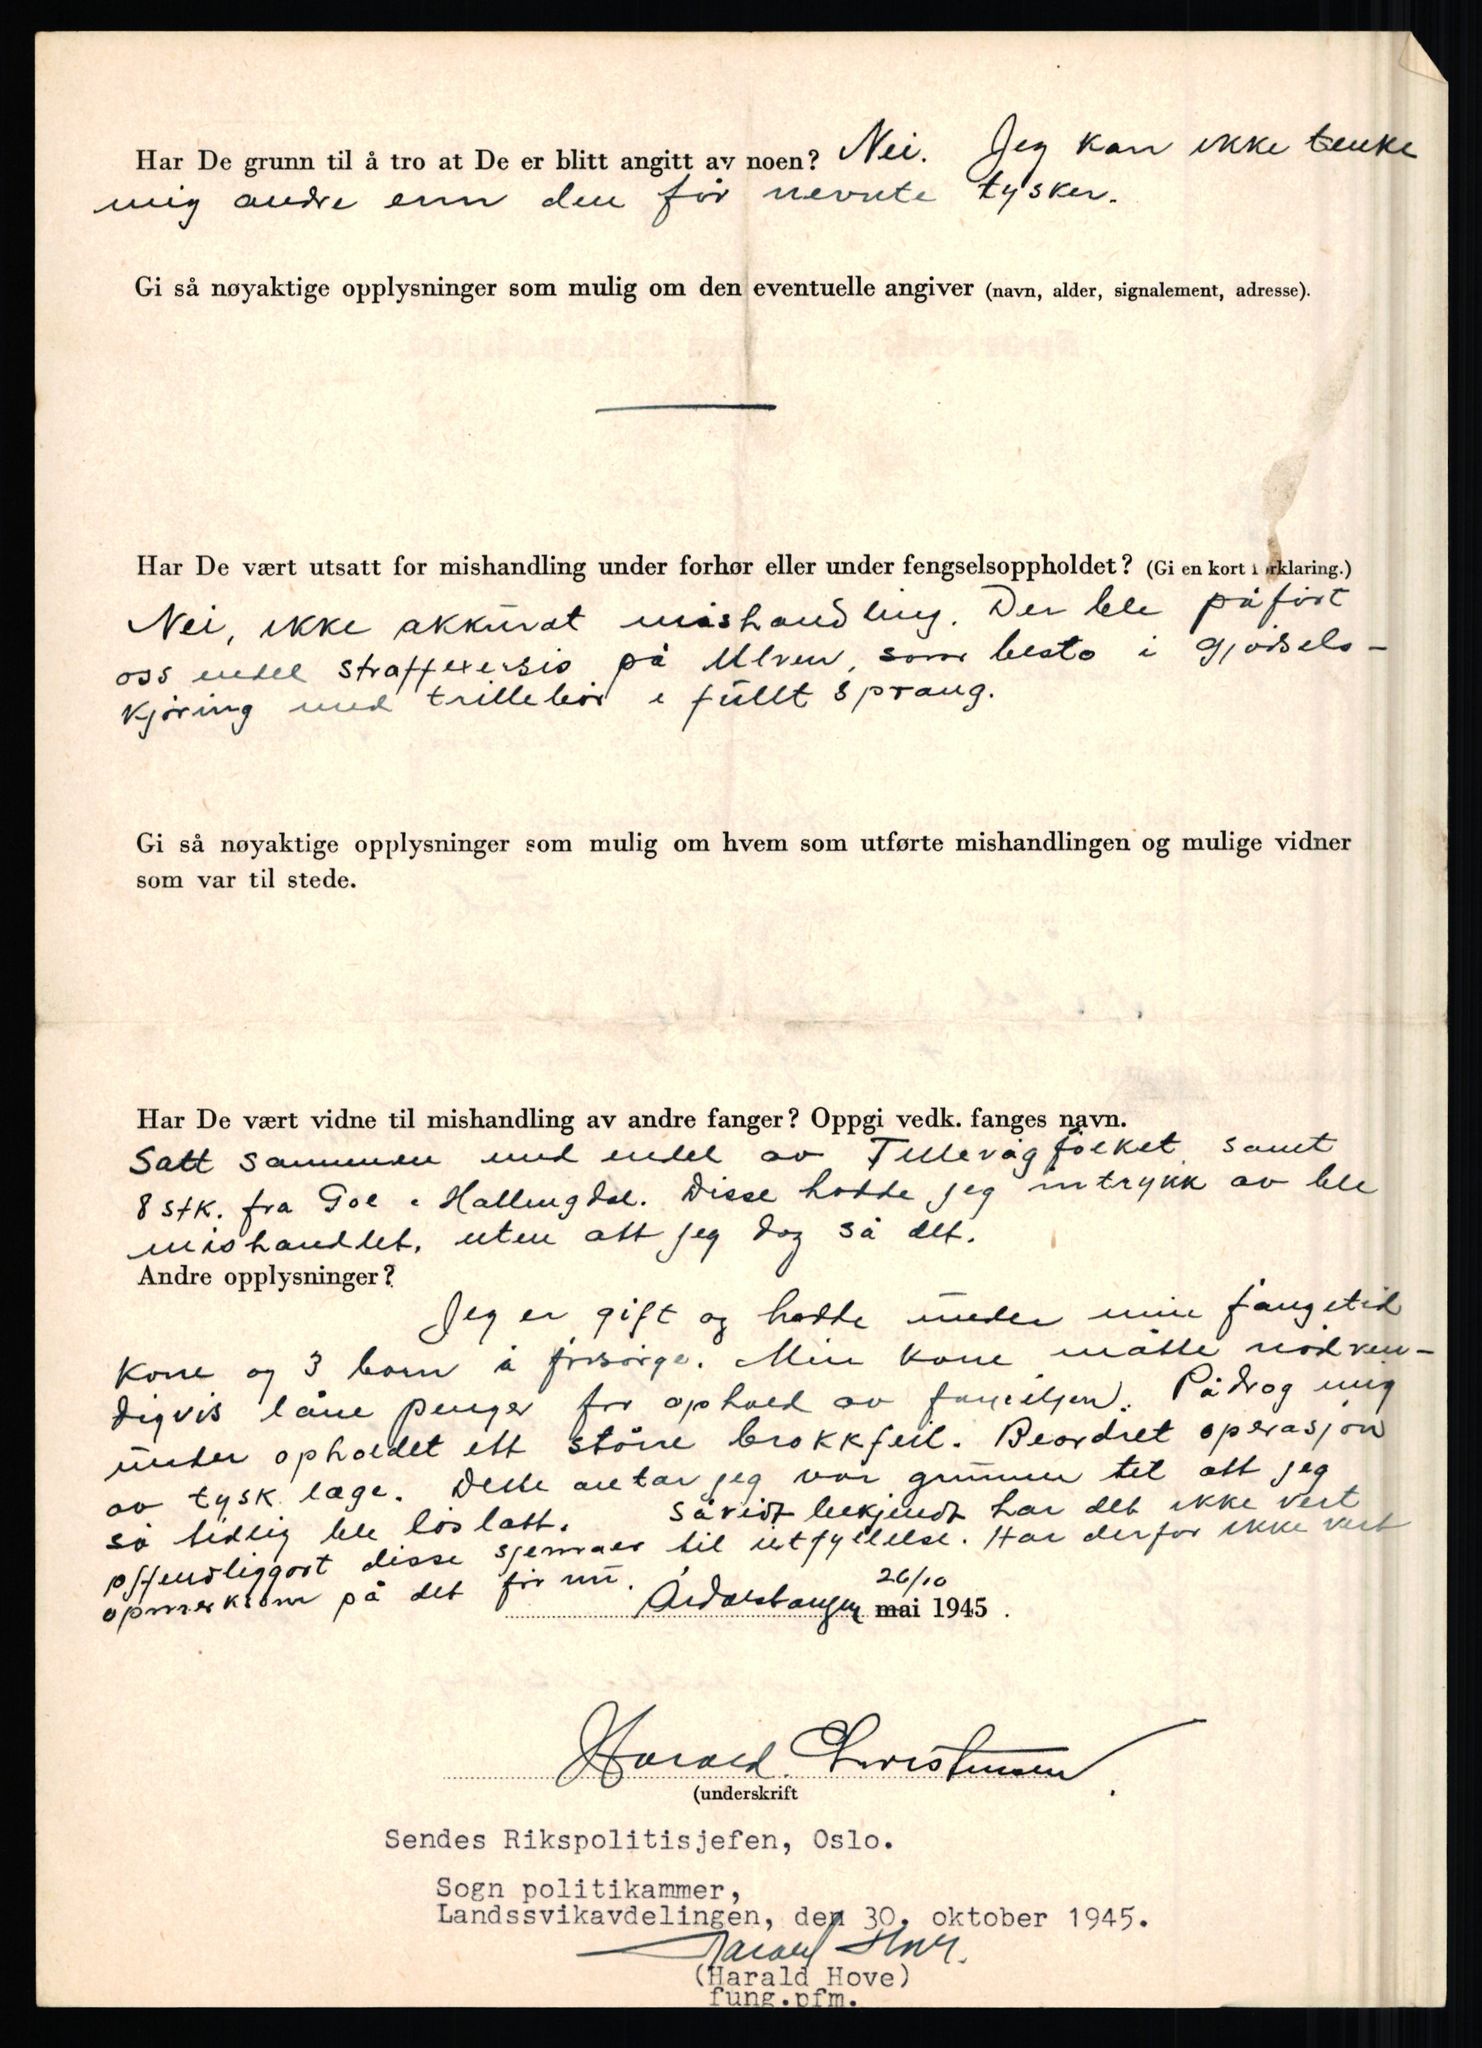 Har De grunn til å tro at De er blitt angitt av noen? Nei. Jeg kan ikke tenke
mig andre enn den før nevnte tysker.
Gi så nøyaktige opplysninger som mulig om den eventuelle angiver (navn, alder, signalement, adresse).
Har De vært utsatt for mishandling under forhør eller under fengselsoppholdet? (Gi en kort forklaring.)
Nei, ikke akkurat mishandling. Der ble påført
oss endel straffexersis på Ulven, som besto i gjødsels-
kjøring med trillebør i fullt sprang.
Gi så nøyaktige opplysninger som mulig om hvem som utførte mishandlingen og mulige vidner
som var til stede.
Har De vært vidne til mishandling av andre fanger? Oppgi vedk. fanges navn.
Satt sammen med endel av Tellevåg folket samt
8 stk. fra Gol i Hallingdal. Disse hadde jeg inntrykk av ble
mishandlet, uten att jeg dog så det.
Andre opplysninger?
Jeg er gift og hadde under min fangetid
kone og 3 barn å forsørge. Min kone måtte nødven-
digvis låne penger for ophold av familjen. Pådrog mig
under opholdet ett større brokkfeil. Beordret operasjon
av tysk læge. Dette antar jeg var grunnen til att jeg
så tidlig ble løslatt. Såvidt bekjendt har det ikke vert
offendliggort disse sjemaer til utfyllelse. Har derfor ikke vert
opmerksom på det før nu. Årdalstangen 26/10 mai 1945.
Harald Christensen
(underskrift
Sendes Rikspolitisjefen, Oslo.
Sogn politikammer,
Landssvikavdelingen, den 30. oktober 1945.
Harald Hove.
(Harald Hove)
fung.pfm.